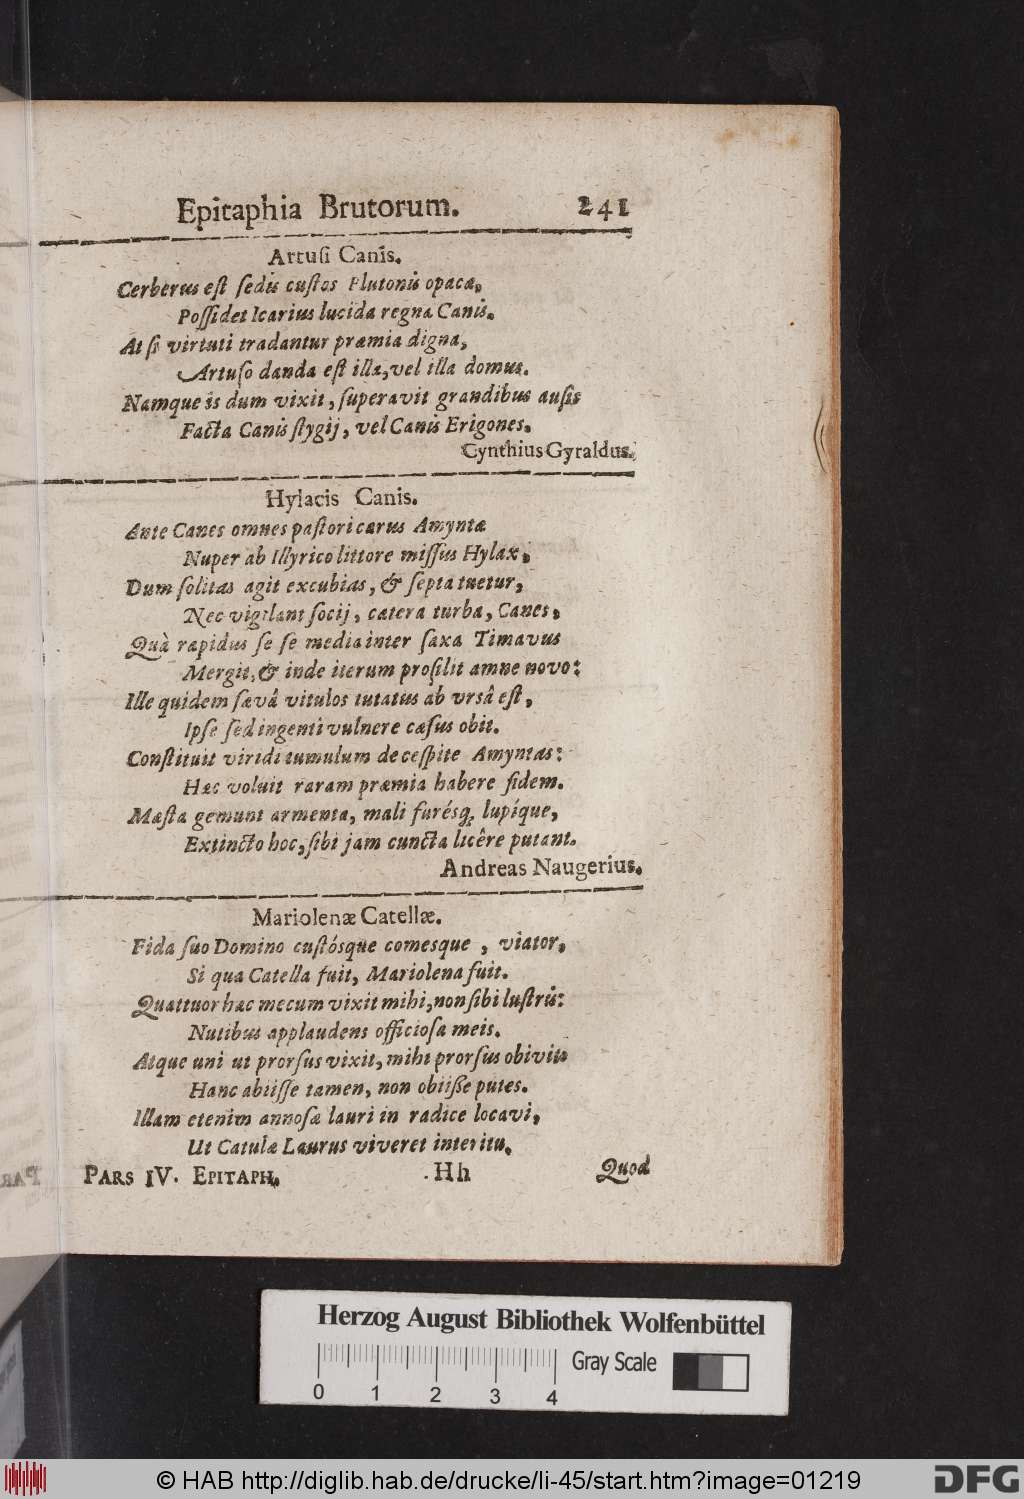 Epitaphia Brutorum. 241
Artusi Canis.
Cerberus est sedis custos Plutonis opacæ,
Possidet Icarius lucida regna Canis.
At si virtuti tradantur præmia digna,
Artuso danda est illa, vel illa domus.
Namque is dum vixit, superavit grandibus ausis
Facta Canis stygij, vel Canis Erigones.
Cynthius Gyraldus.
Hylacis Canis.
Ante Canes omnes pastori carus Amyntæ
Nuper ab Illyrico littore missus Hylax,
Dum solitas agit excubias, & septa tuetur,
Nec vigilant socij, cætera turba, Canes,
Quà rapidus se se media inter saxa Timavus
Mergit, & inde iterum prosilit amne novo:
Ille quidem sævâ vitulos tutatus ab ursâ est,
Ipse sed ingenti vulnere cæsus obit.
Constituit viridi tumulum de cespite Amyntas:
Hæc voluit raram præmia habere fidem.
Mæsta gemunt armenta, mali furésq; lupíque,
Extincto hoc, sibi jam cuncta licêre putant.
Andreas Naugerius.
Mariolenæ Catellæ.
Fida suo Domino custósque comesque, viator,
Si qua Catella fuit, Mariolena fuit.
Quattuor hæc mecum vixit mihi, non sibi lustris:
Nutibus applaudens officiosa meis.
Atque uni ut prorsus vixit, mihi prorsus obivit:
Hanc abiisse tamen, non obiisse putes.
Illam etenim annosæ lauri in radice locavi,
Ut Catulæ Laurus viveret interitu.
PARS IV. EPITAPH. Hh Quod
Herzog August Bibliothek Wolfenbüttel
Gray Scale
0 1 2 3 4
© HAB http://diglib.hab.de/drucke/li-45/start.htm?image=01219
DFG